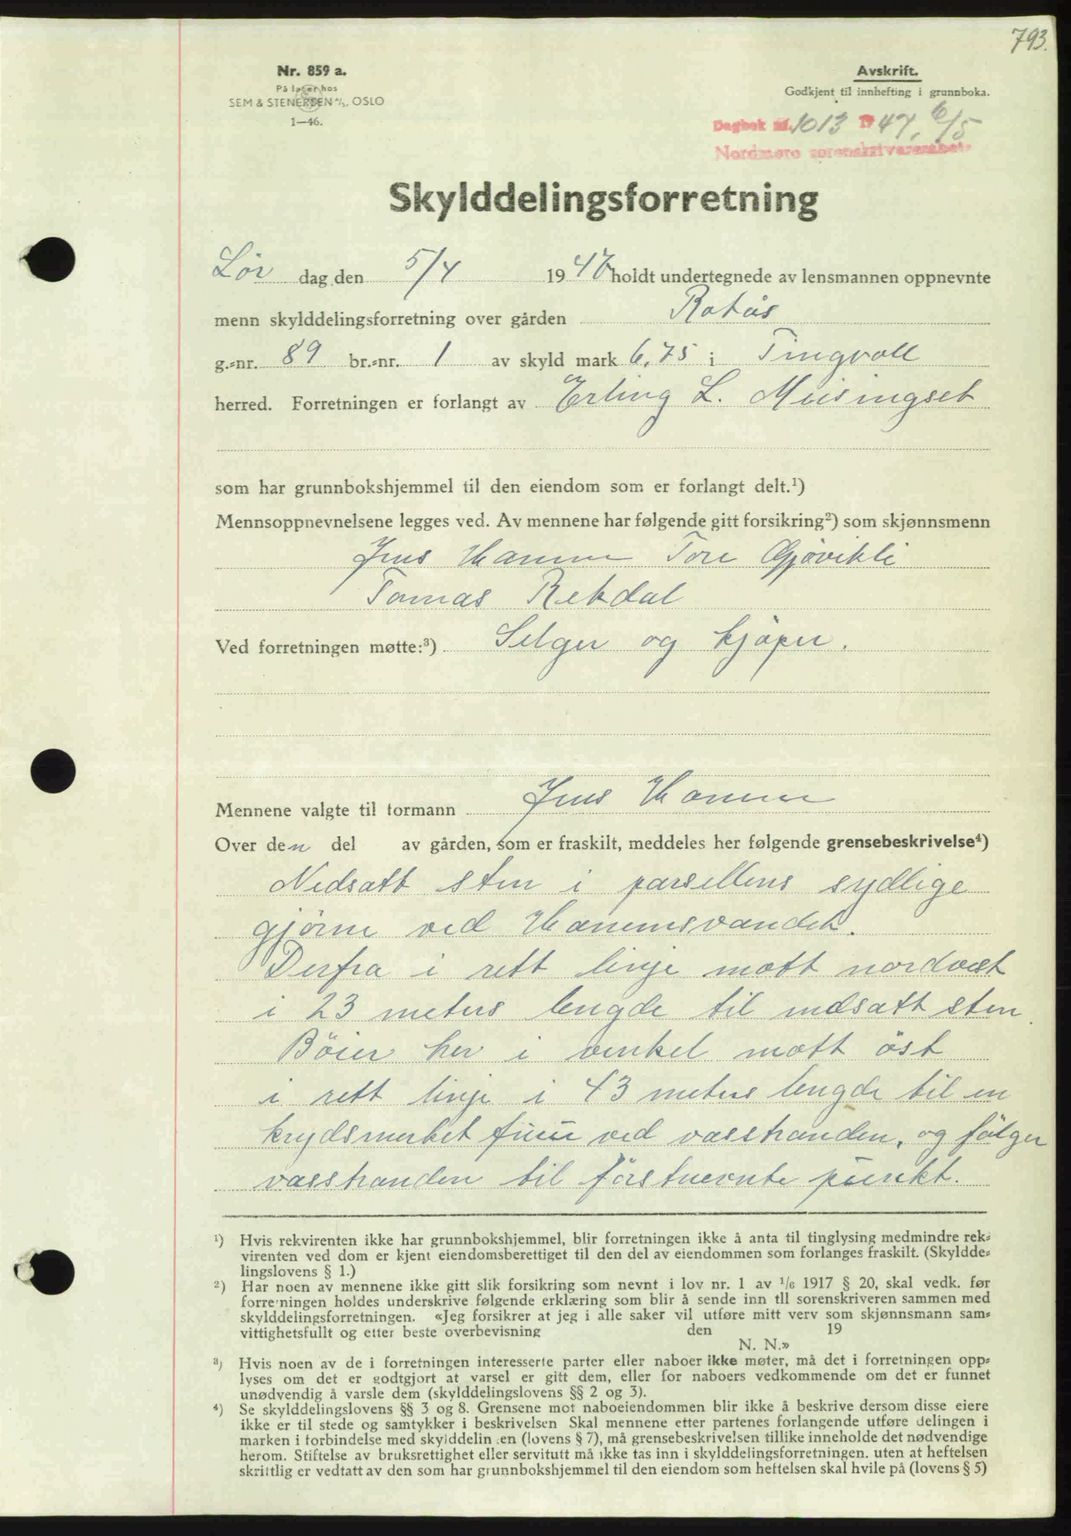 793.
Nr. 859 a.
På lager hos
SEM & STENERSEN A/S, OSLO
1—46.
Avskrift.
Godkjent til innhefting i grunnboka.
Dagbok nr. 1013 1947, 6/5
Nordmøre sorenskriverembete
Skylddelingsforretning
Lør dag den 5/4 1947 holdt undertegnede av lensmannen oppnevnte
menn skylddelingsforretning over gården Rotås
g.-nr. 89 br.-nr. 1 av skyld mark 6,75 i Tingvoll
herred. Forretningen er forlangt av Erling L. Meisingset
som har grunnbokshjemmel til den eiendom som er forlangt delt.¹)
Mennsoppnevnelsene legges ved. Av mennene har følgende gitt forsikring²) som skjønnsmenn
Jens Hanem Tore Gjøvikli
Tomas Rekdal
Ved forretningen møtte:³) Selger og kjøper.
Mennene valgte til formann Jens Hanem
Over den del av gården, som er fraskilt, meddeles her følgende grensebeskrivelse⁴)
Nedsatt sten i parsellens sydlige
hjørne ved Hanemsvandet.
Derfra i rett linje mott nordvest
i 23 meters lengde til nedsatt sten.
Bøier her i vinkel mott øst
i rett linje i 43 meters lengde til en
krydsmerket furu ved vasstranden, og følger
vasstranden til førstnevnte punkt.
¹) Hvis rekvirenten ikke har grunnbokshjemmel, blir forretningen ikke å anta til tinglysing medmindre rek-
virenten ved dom er kjent eiendomsberettiget til den del av eiendommen som forlanges fraskilt. (Skyldde-
lingslovens § 1.)
²) Har noen av mennene ikke gitt slik forsikring som nevnt i lov nr. 1 av 1/6 1917 § 20, skal vedk. før
forretningen holdes underskrive følgende erklæring som blir å sende inn til sorenskriveren sammen med
skylddelingsforretningen. «Jeg forsikrer at jeg i alle saker vil utføre mitt verv som skjønnsmann sam-
vittighetsfullt og etter beste overbevisning den 19
N. N.»
³) Hvis noen av de i forretningen interesserte parter eller naboer ikke møter, må det i forretningen opp-
lyses om det er godtgjort at varsel er gitt dem, eller for naboers vedkommende om det er funnet
unødvendig å varsle dem (skylddelingslovens §§ 2 og 3).
⁴) Se skylddelingslovens §§ 3 og 8. Grensene mot naboeiendommen blir ikke å beskrive dersom disse eiere
ikke er til stede og samtykker i beskrivelsen Skal mennene etter partenes forlangende utføre delingen i
marken i forbindelse med skylddelingen (lovens § 7), må grensebeskrivelsen tillike inneholde det nødvendige
herom. Stiftelse av bruksrettighet eller servitutt må ikke tas inn i skylddelingsforretningen. uten at heftelsen
skriftlig er vedtatt av den som har grunnbokshjemmel til den eiendom som heftelsen skal hvile på (lovens § 5)